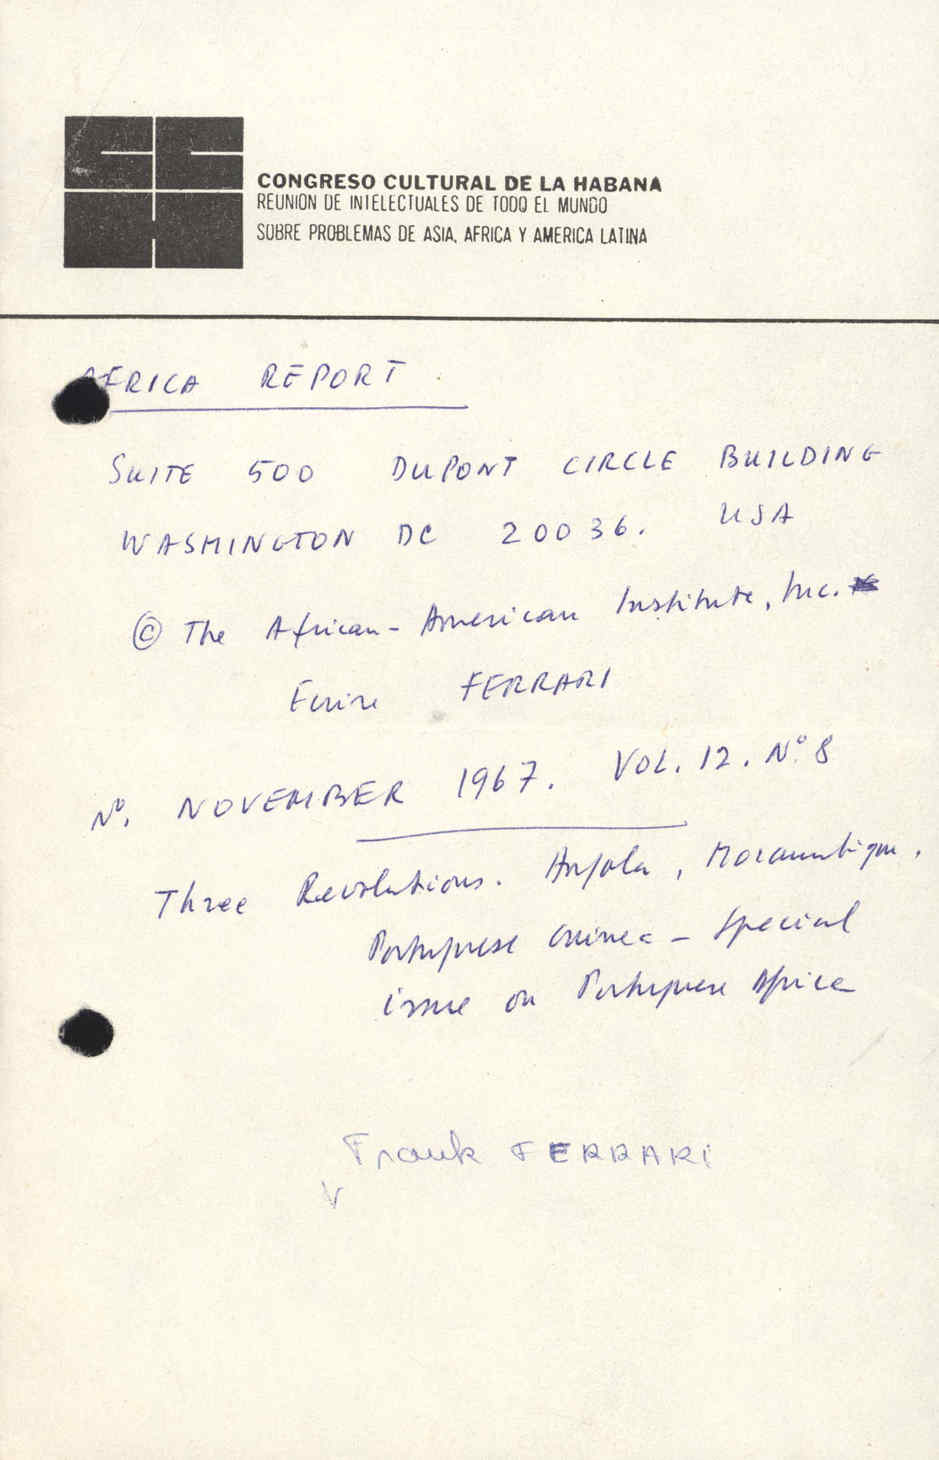 CONGRESO CULTURAL DE LA HABANA
REUNION DE INTELECTUALES DE TODO EL MUNDO
SOBRE PROBLEMAS DE ASIA, AFRICA Y AMERICA LATINA
AFRICA REPORT
SUITE 500 DUPONT CIRCLE BUILDING
WASHINGTON DC 20036. USA
© The African-American Institute, Inc.
FERRARI
Nº. NOVEMBER 1967. VOL. 12. Nº 8
Three Revolutions. Angola, Mozambique,
Portuguese Guinea - Special
issue on Portuguese Africa
Frank FERRARI
V